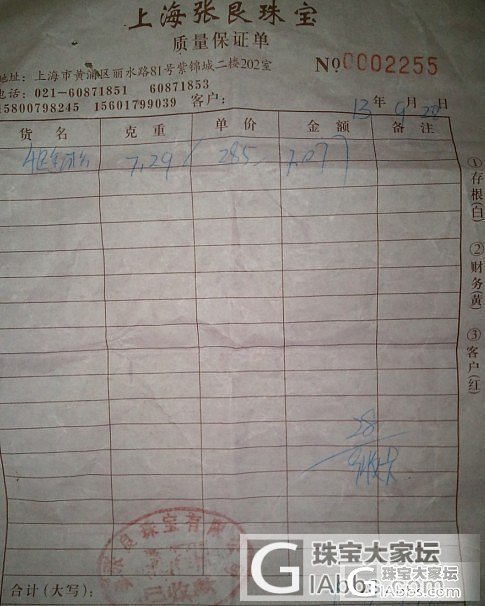 上海张良珠宝
质量保证单
地址：上海市黄浦区丽水路81号紫锦城二楼202室
No 0002255
电话：021-60871851 60871853
15800798245 15601799039 客户：
13年9月20日
货名 克重 单价 金额 备注
7.29 285
①存根(白) ②财务(黄) ③客户(红)
28
良珠宝有限
收
合计(大写)：
珠宝大家坛
GIAbbs.com
珠宝大家坛
GIAbbs.com